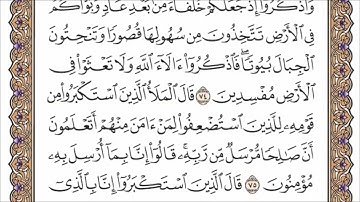 وَٱذْكُرُوٓا۟ إِذْ جَعَلَكُمْ خُلَفَآءَ مِنۢ بَعْدِ عَادٍ وَبَوَّأَكُمْ
فِى ٱلْأَرْضِ تَتَّخِذُونَ مِن سُهُولِهَا قُصُورًا وَتَنْحِتُونَ
ٱلْجِبَالَ بُيُوتًا ۖ فَٱذْكُرُوٓا۟ ءَالَآءَ ٱللَّهِ وَلَا تَعْثَوْا۟ فِى
ٱلْأَرْضِ مُفْسِدِينَ ٧٤ قَالَ ٱلْمَلَأُ ٱلَّذِينَ ٱسْتَكْبَرُوا۟ مِن
قَوْمِهِۦ لِلَّذِينَ ٱسْتُضْعِفُوا۟ لِمَنْ ءَامَنَ مِنْهُمْ أَتَعْلَمُونَ
أَنَّ صَٰلِحًا مُّرْسَلٌ مِّن رَّبِّهِۦ ۚ قَالُوٓا۟ إِنَّا بِمَآ أُرْسِلَ بِهِۦ
مُؤْمِنُونَ ٧٥ قَالَ ٱلَّذِينَ ٱسْتَكْبَرُوٓا۟ إِنَّا بِٱلَّذِىٓ